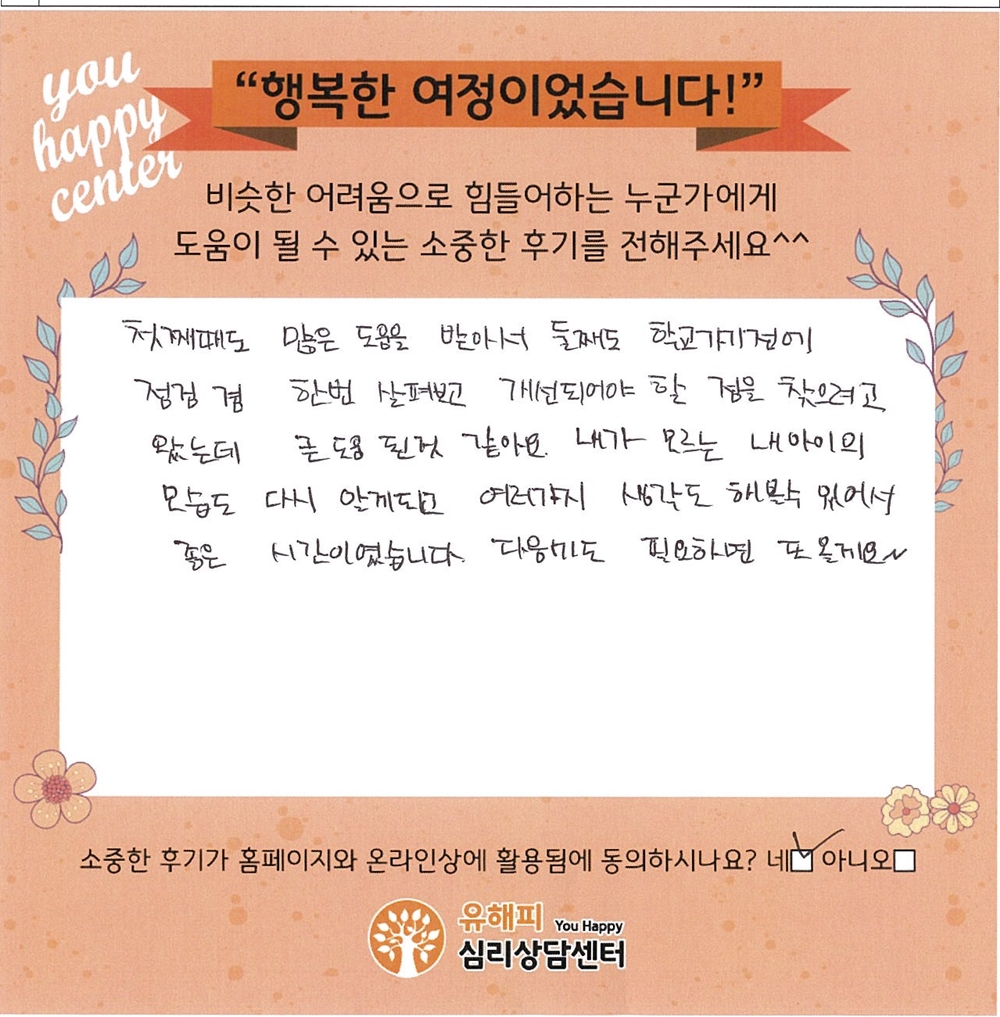 you
happy
center
“행복한 여정이었습니다!”
비슷한 어려움으로 힘들어하는 누군가에게
도움이 될 수 있는 소중한 후기를 전해주세요^^
첫째때도 많은 도움을 받아서 둘째도 학교가기전에
점검 겸 한번 살펴보고 개선되어야 할 점을 찾으려고
왔는데 큰 도움 된것 같아요. 내가 모르는 내아이의
모습도 다시 알게되고 여러가지 생각도 해볼수 있어서
좋은 시간이였습니다. 다음에도 필요하면 또 올게요~
소중한 후기가 홈페이지와 온라인상에 활용됨에 동의하시나요? 네☑ 아니오☐
유해피 You Happy
심리상담센터